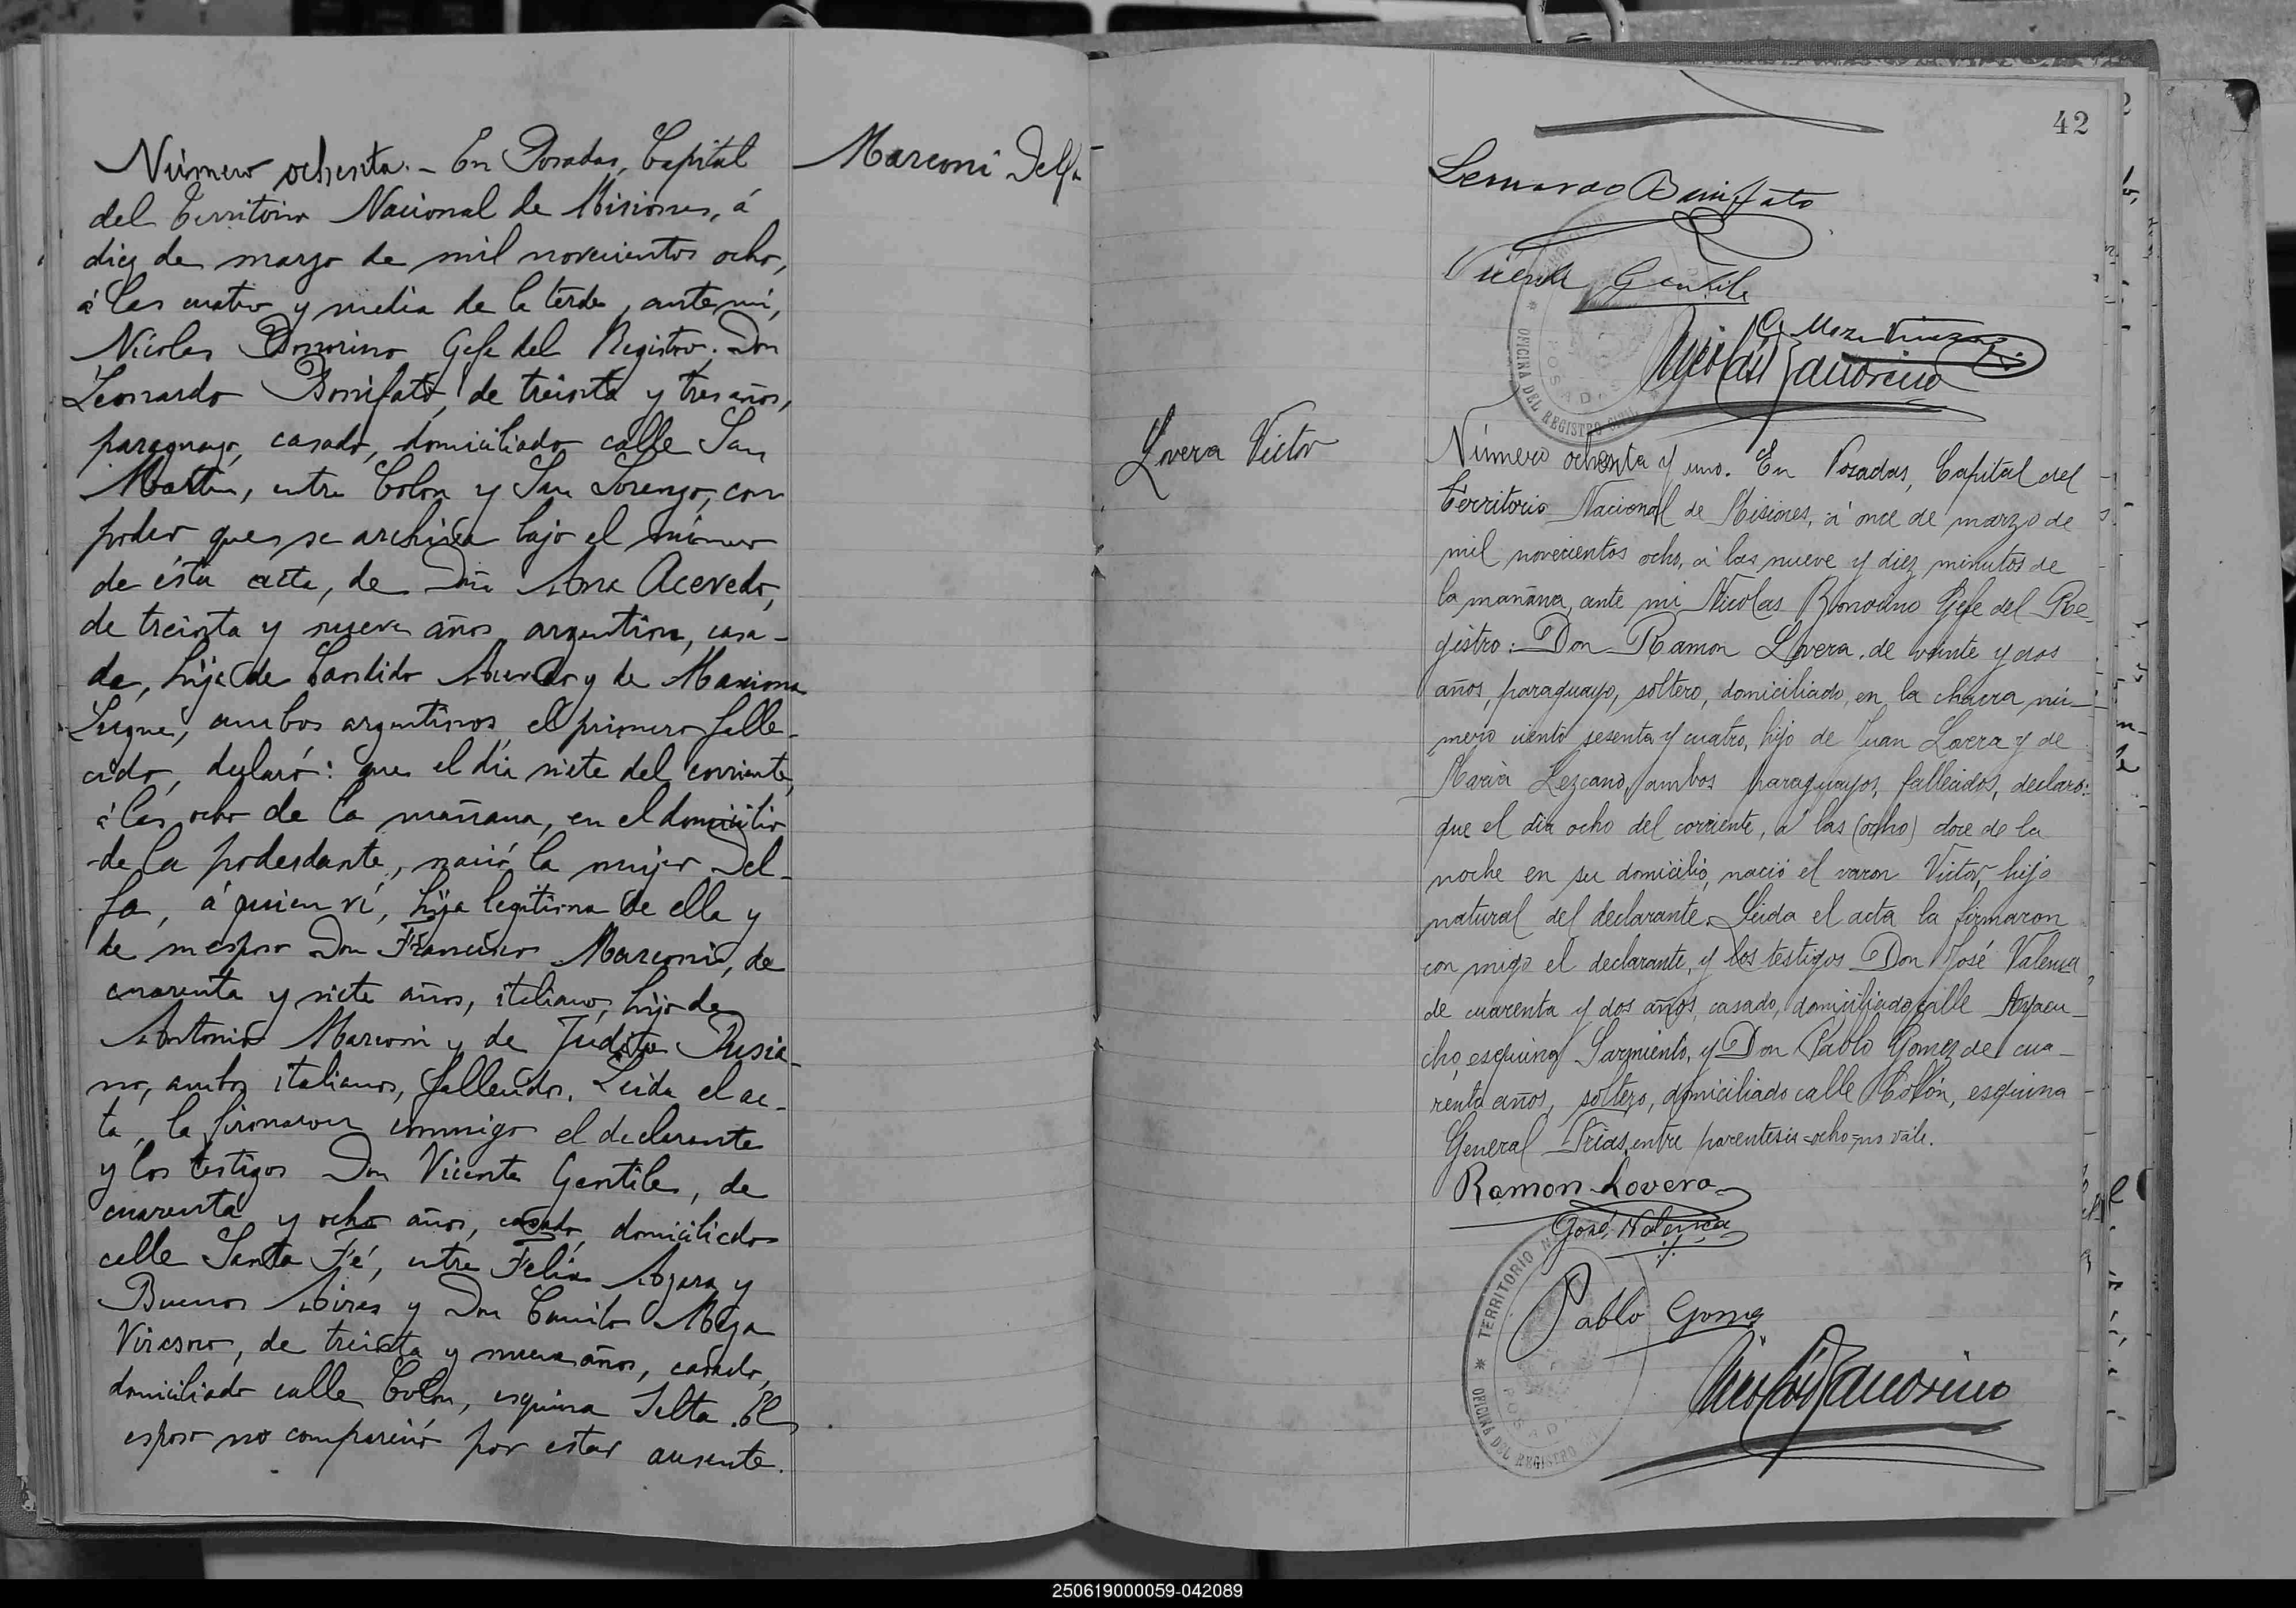 Número ochenta. - En Posadas, Capital
del Territorio Nacional de Misiones, á
diez de marzo de mil novecientos ocho,
á las cuatro y media de la tarde, ante mí,
Nicolas Bonorino Gefe del Registro: Don
Leonardo Bonifato, de treinta y tres años,
paraguayo, casado, domiciliado calle San
Martin, entre Colon y San Lorenzo, con
poder que se archiva bajo el número
de ésta acta, de Dña Ana Acevedo,
de treinta y nueve años, argentina, casa-
da, hija de Candido Acevedo y de Maxima
ambos argentinos, el primero falle-
cido, declaró: que el día siete del corriente,
á las ocho de la mañana, en el domicilio
de la poderdante, nació la mujer Del-
fa, á quien ví, hija legitima de ella y
de su esposo Don Francisco Marconi, de
cuarenta y siete años, italiano, hijo de
Antonio Marconi y de Judita Pusia-
no, ambos italianos, fallecidos. Leida el ac-
ta, la firmaron conmigo el declarante
y los testigos Don Vicente Gentile, de
cuarenta y ocho años, casado, domiciliado
calle Santa Fé, entre Felix Azara y
Buenos Aires y Don Camilo Meza
Virasoro, de treinta y nueve años, casado,
domiciliado calle Colon, esquina Salta. El
esposo no compareció por estar ausente.
Marconi Delfa
42
Leonardo Bonifato
Vicente Gentile
Nicolás Bonorino
OFICINA DEL REGISTRO CIVIL
POSADAS
Lovera Victor
Número ochenta y uno. En Posadas, Capital del
Territorio Nacional de Misiones, á once de marzo de
mil novecientos ocho, á las nueve y diez minutos de
la mañana, ante mi Nicolas Bonorino Gefe del Re-
gistro: Don Ramon Lovera, de veinte y dos
años, paraguayo, soltero, domiciliado, en la chacra nú-
mero ciento sesenta y cuatro, hijo de Juan Lovera y de
Maria Lezcano, ambos paraguayos, fallecidos, declaró:
que el día ocho del corriente, á las (ocho) doce de la
noche en su domicilio, nació el varon Victor, hijo
natural del declarante. Leida el acta la firmaron
con migo el declarante, y los testigos Don José Valensa
de cuarenta y dos años, casado, domiciliado calle Ayacu-
cho, esquina Sarmiento, y Don Pablo Gomez de cua-
renta años, soltero, domiciliado calle Colón, esquina
General Frias, entre parentesis=ocho=no vale.
Ramon Lovera
José Valensa
Pablo Gomez
Nicolás Bonorino
TERRITORIO
OFICINA DEL REGISTRO
POSAD
250619000059-042089